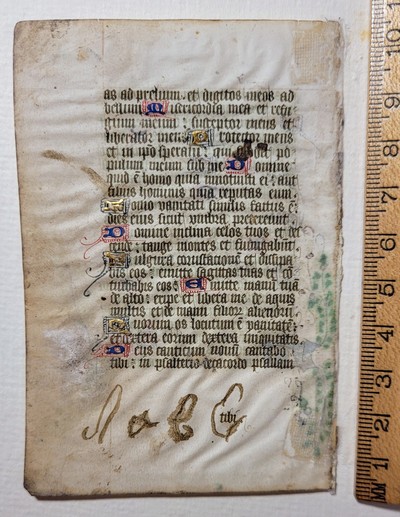 as ad prelium: et digitos meos ad
bellum Misericordia mea et refu
gium meum: susceptor meus et
liberator meus Protector meus
et in ip̄o speraui: qui subdit po
pulum meum sub me Domine
quid ē homo quia innotuisti ei: aut
filius hominis quia reputas eum
Homo vanitati similis factus ē:
dies eius sicut umbra pretereunt
Domine inclina celos tuos et des
cende: tange montes et fumigabūt
Fulgura coruscationē et dissipa
bis eos: emitte sagittas tuas et cō
turbabis eos Emitte manū tuā
de alto: eripe et libera me de aquis
multis et de manu filiorū alienorū
Quorum os locutum ē vanitatē:
et dextera eorum dextera iniquitatis
Deus canticum nouū cantabo
tibi: in psalterio decacordo psallam
tibi
a b C
MM 1 2 3 4 5 6 7 8 9 10